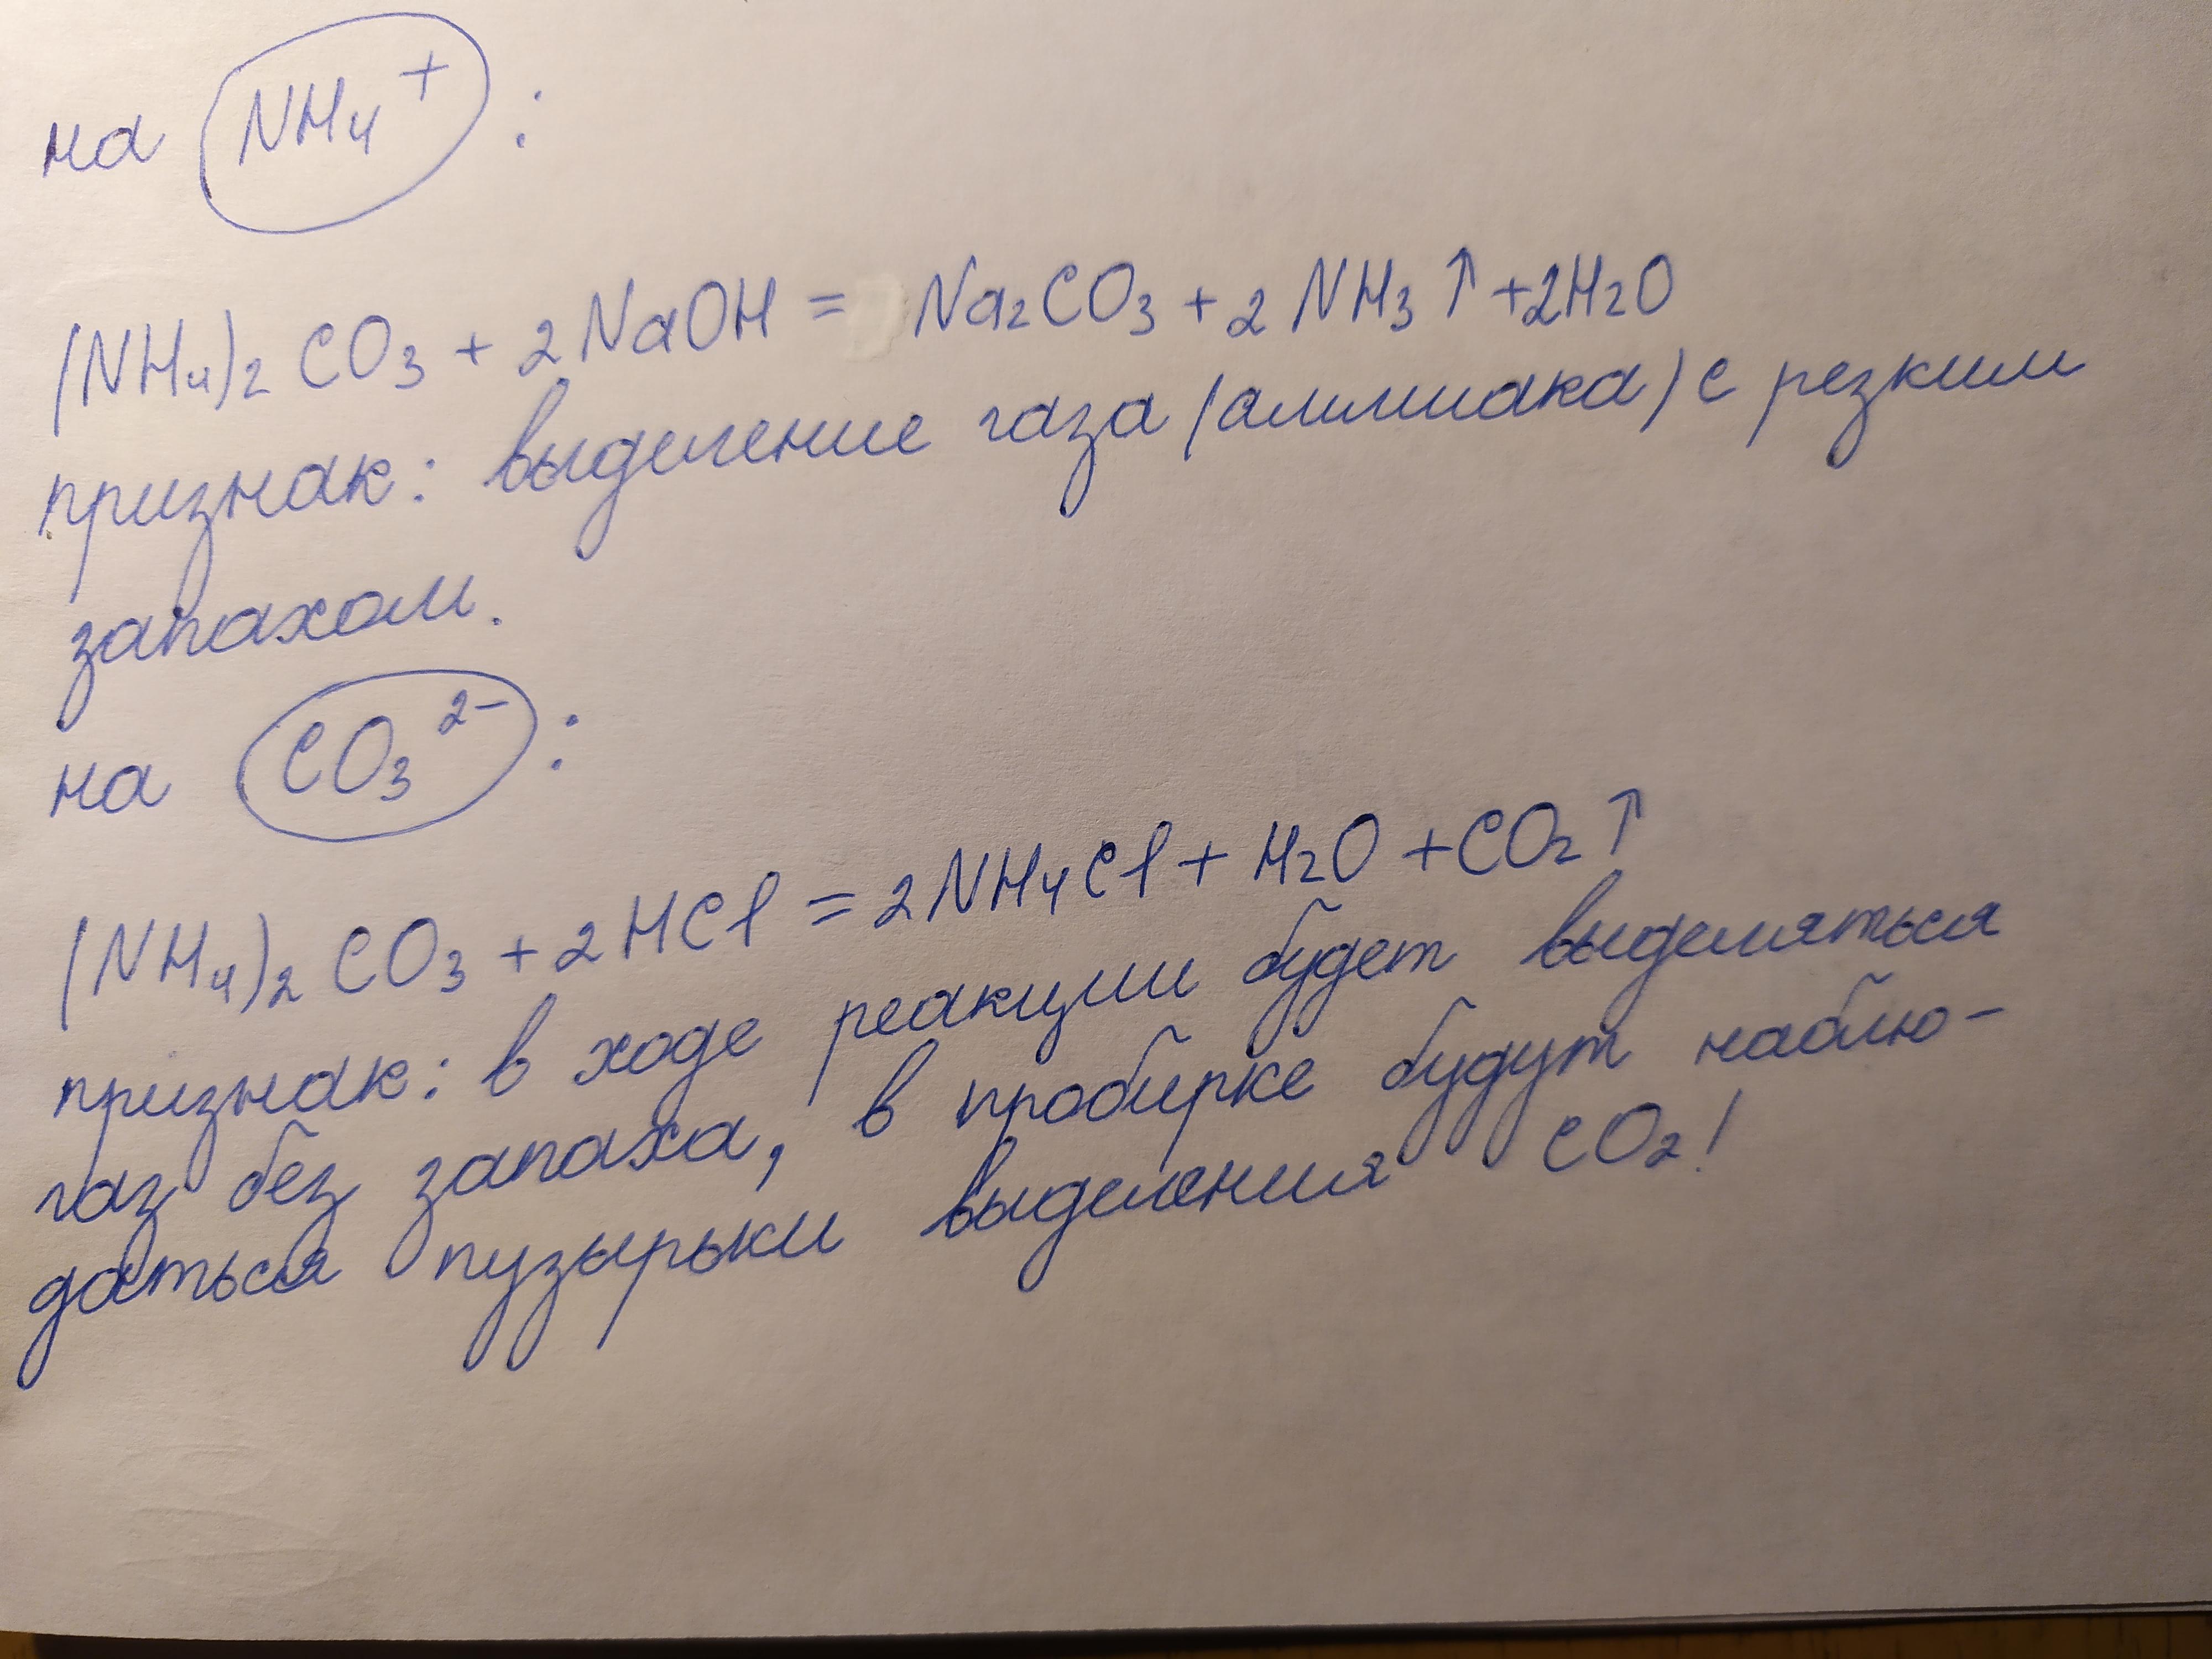 на NH₄⁺:
(NH₄)₂CO₃ + 2NaOH = Na₂CO₃ + 2NH₃↑ + 2H₂O
признак: выделение газа (аммиака) с резким
запахом.
на CO₃²⁻:
(NH₄)₂CO₃ + 2HCl = 2NH₄Cl + H₂O + CO₂↑
признак: в ходе реакции будет выделяться
газ без запаха, в пробирке будут наблю-
даться пузырьки выделения CO₂!